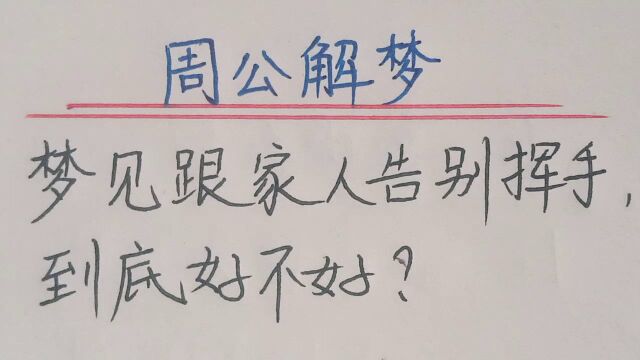 周公解梦
梦见跟家人告别挥手,
到底好不好?